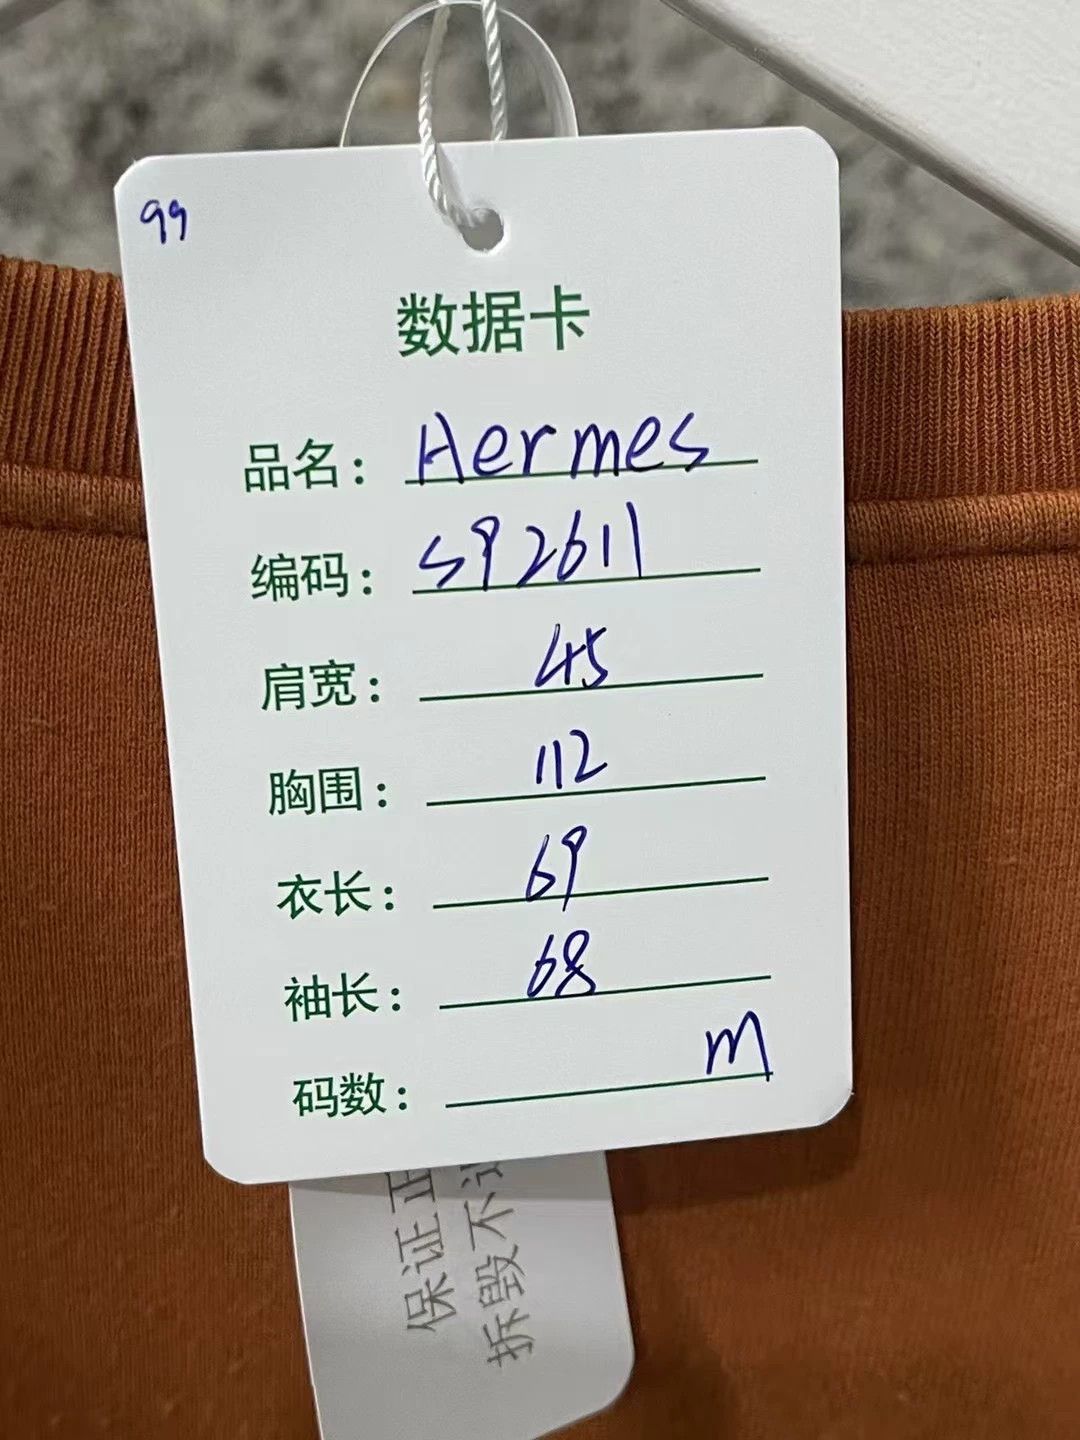 99
数据卡
品名: Hermes
编码: S92611
肩宽: 45
胸围: 112
衣长: 69
袖长: 68
码数: M
保证正
拆毁不